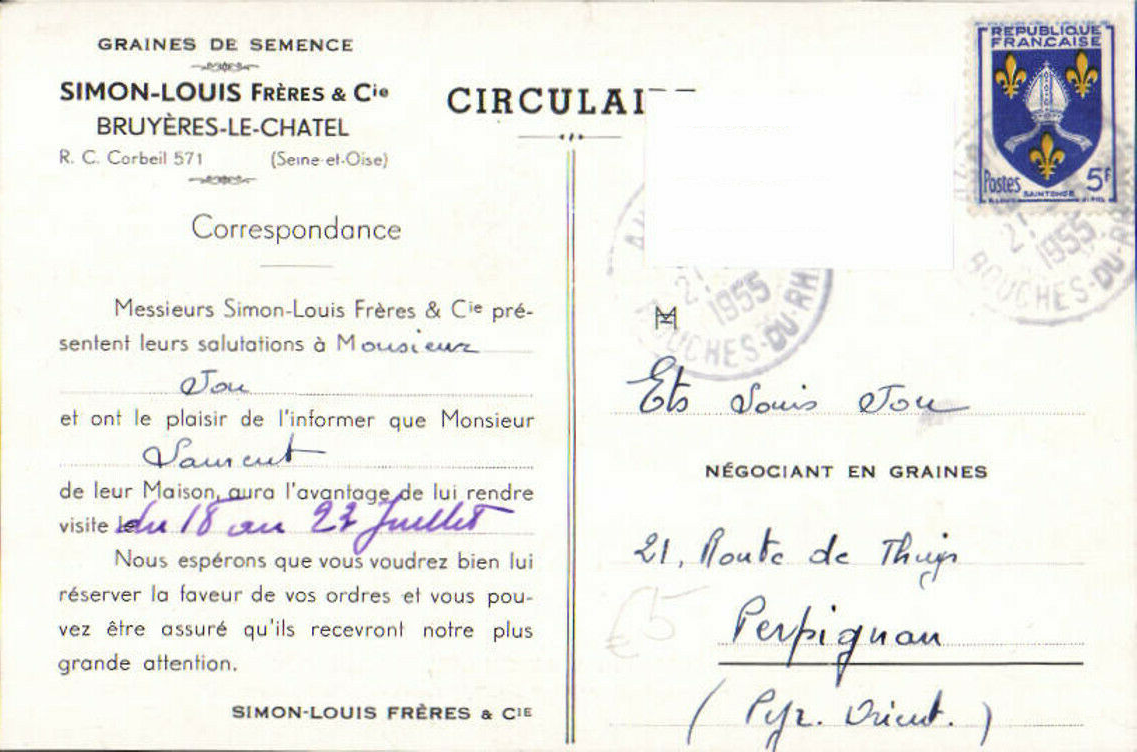 GRAINES DE SEMENCE
SIMON-LOUIS FRÈRES & Cie
BRUYÈRES-LE-CHATEL
R. C. Corbeil 571 (Seine-et-Oise)
Correspondance
Messieurs Simon-Louis Frères & Cie pré-
sentent leurs salutations à Monsieur
Jou
et ont le plaisir de l'informer que Monsieur
Laurent
de leur Maison, aura l'avantage de lui rendre
visite le du 18 au 23 Juillet
Nous espérons que vous voudrez bien lui
réserver la faveur de vos ordres et vous pou-
vez être assuré qu'ils recevront notre plus
grande attention.
SIMON-LOUIS FRÈRES & CIE
CIRCULAI
REPUBLIQUE
FRANÇAISE
Postes 5F
SAINTONGE
21
1955
BOUCHES-DU-RH
21
1955
UCHES-DU-RH
M
Ets Louis Jou
NÉGOCIANT EN GRAINES
21, Route de Thuir
€5
Perpignan
(Pyr. Orient.)